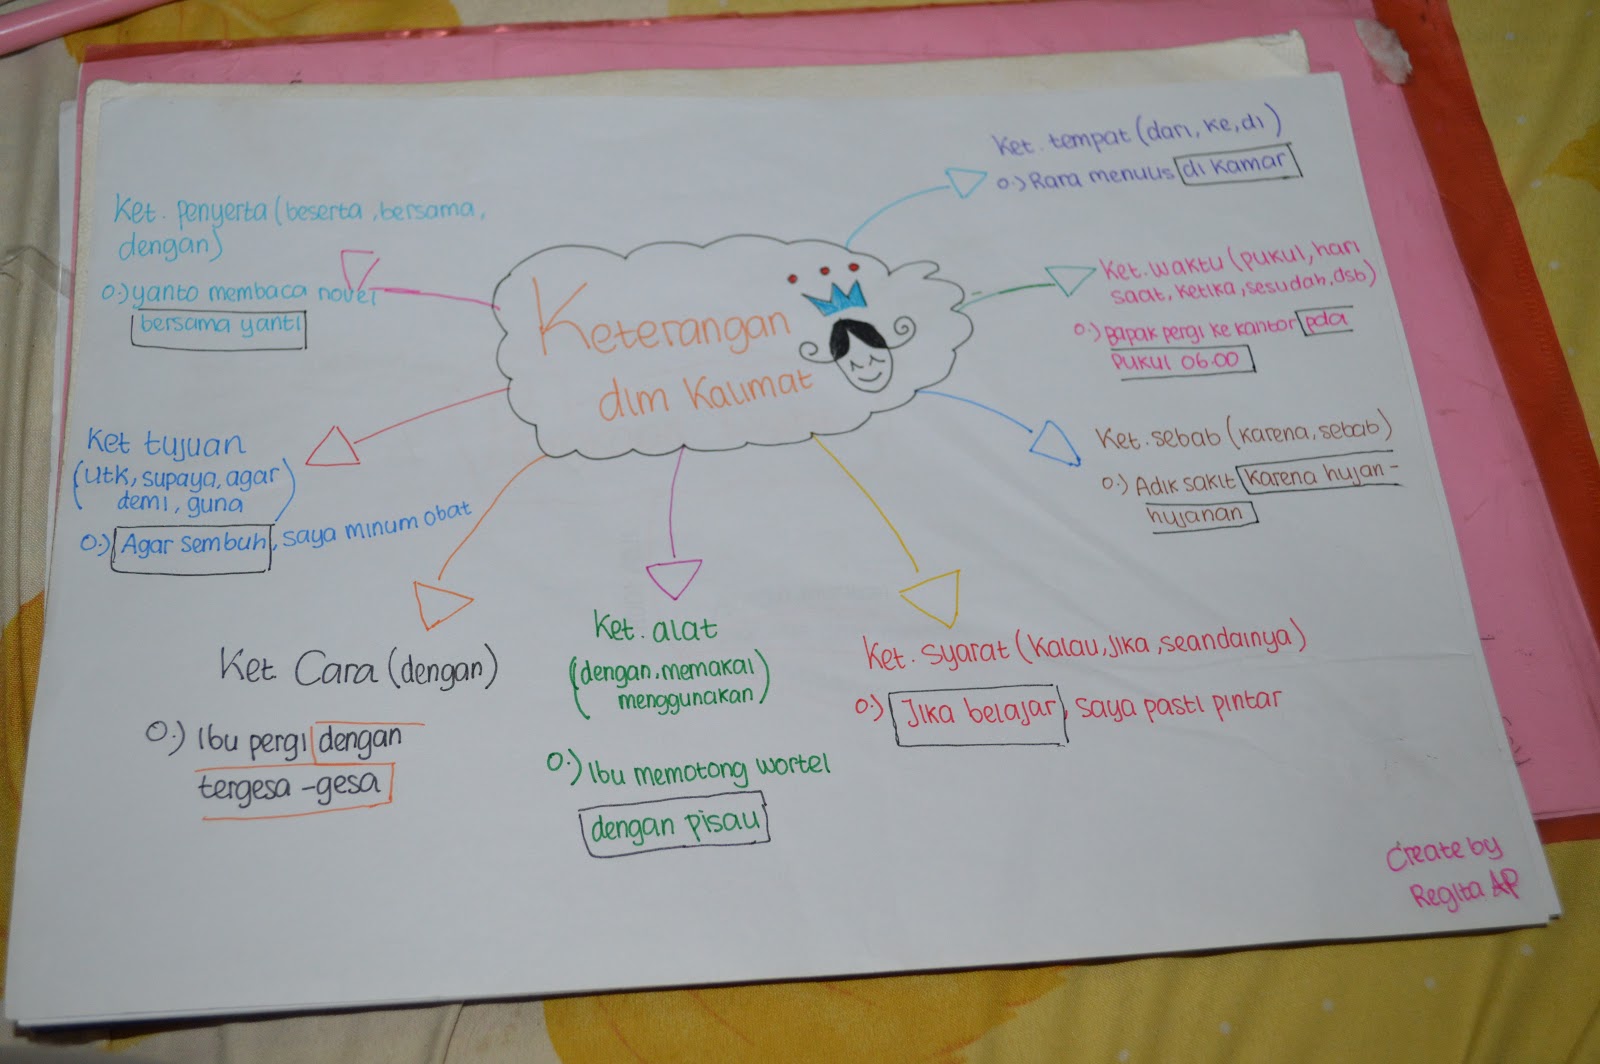 Keterangan
dlm Kalimat
Ket. tempat (dari, ke, di)
o.) Rara menulis di kamar
Ket. waktu (pukul, hari
saat, ketika, sesudah, dsb)
o.) Bapak pergi ke kantor pda
pukul 06.00
Ket. sebab (karena, sebab)
o.) Adik sakit karena hujan-
hujanan
Ket. syarat (kalau, jika, seandainya)
o.) Jika belajar, saya pasti pintar
Ket. alat
(dengan, memakai
menggunakan)
o.) Ibu memotong wortel
dengan pisau
Ket. Cara (dengan)
o.) Ibu pergi dengan
tergesa-gesa
Ket tujuan
(utk, supaya, agar
demi, guna)
o.) Agar sembuh, saya minum obat
Ket. penyerta (beserta, bersama,
dengan)
o.) yanto membaca novel
bersama yanti
Create by
Regita AP